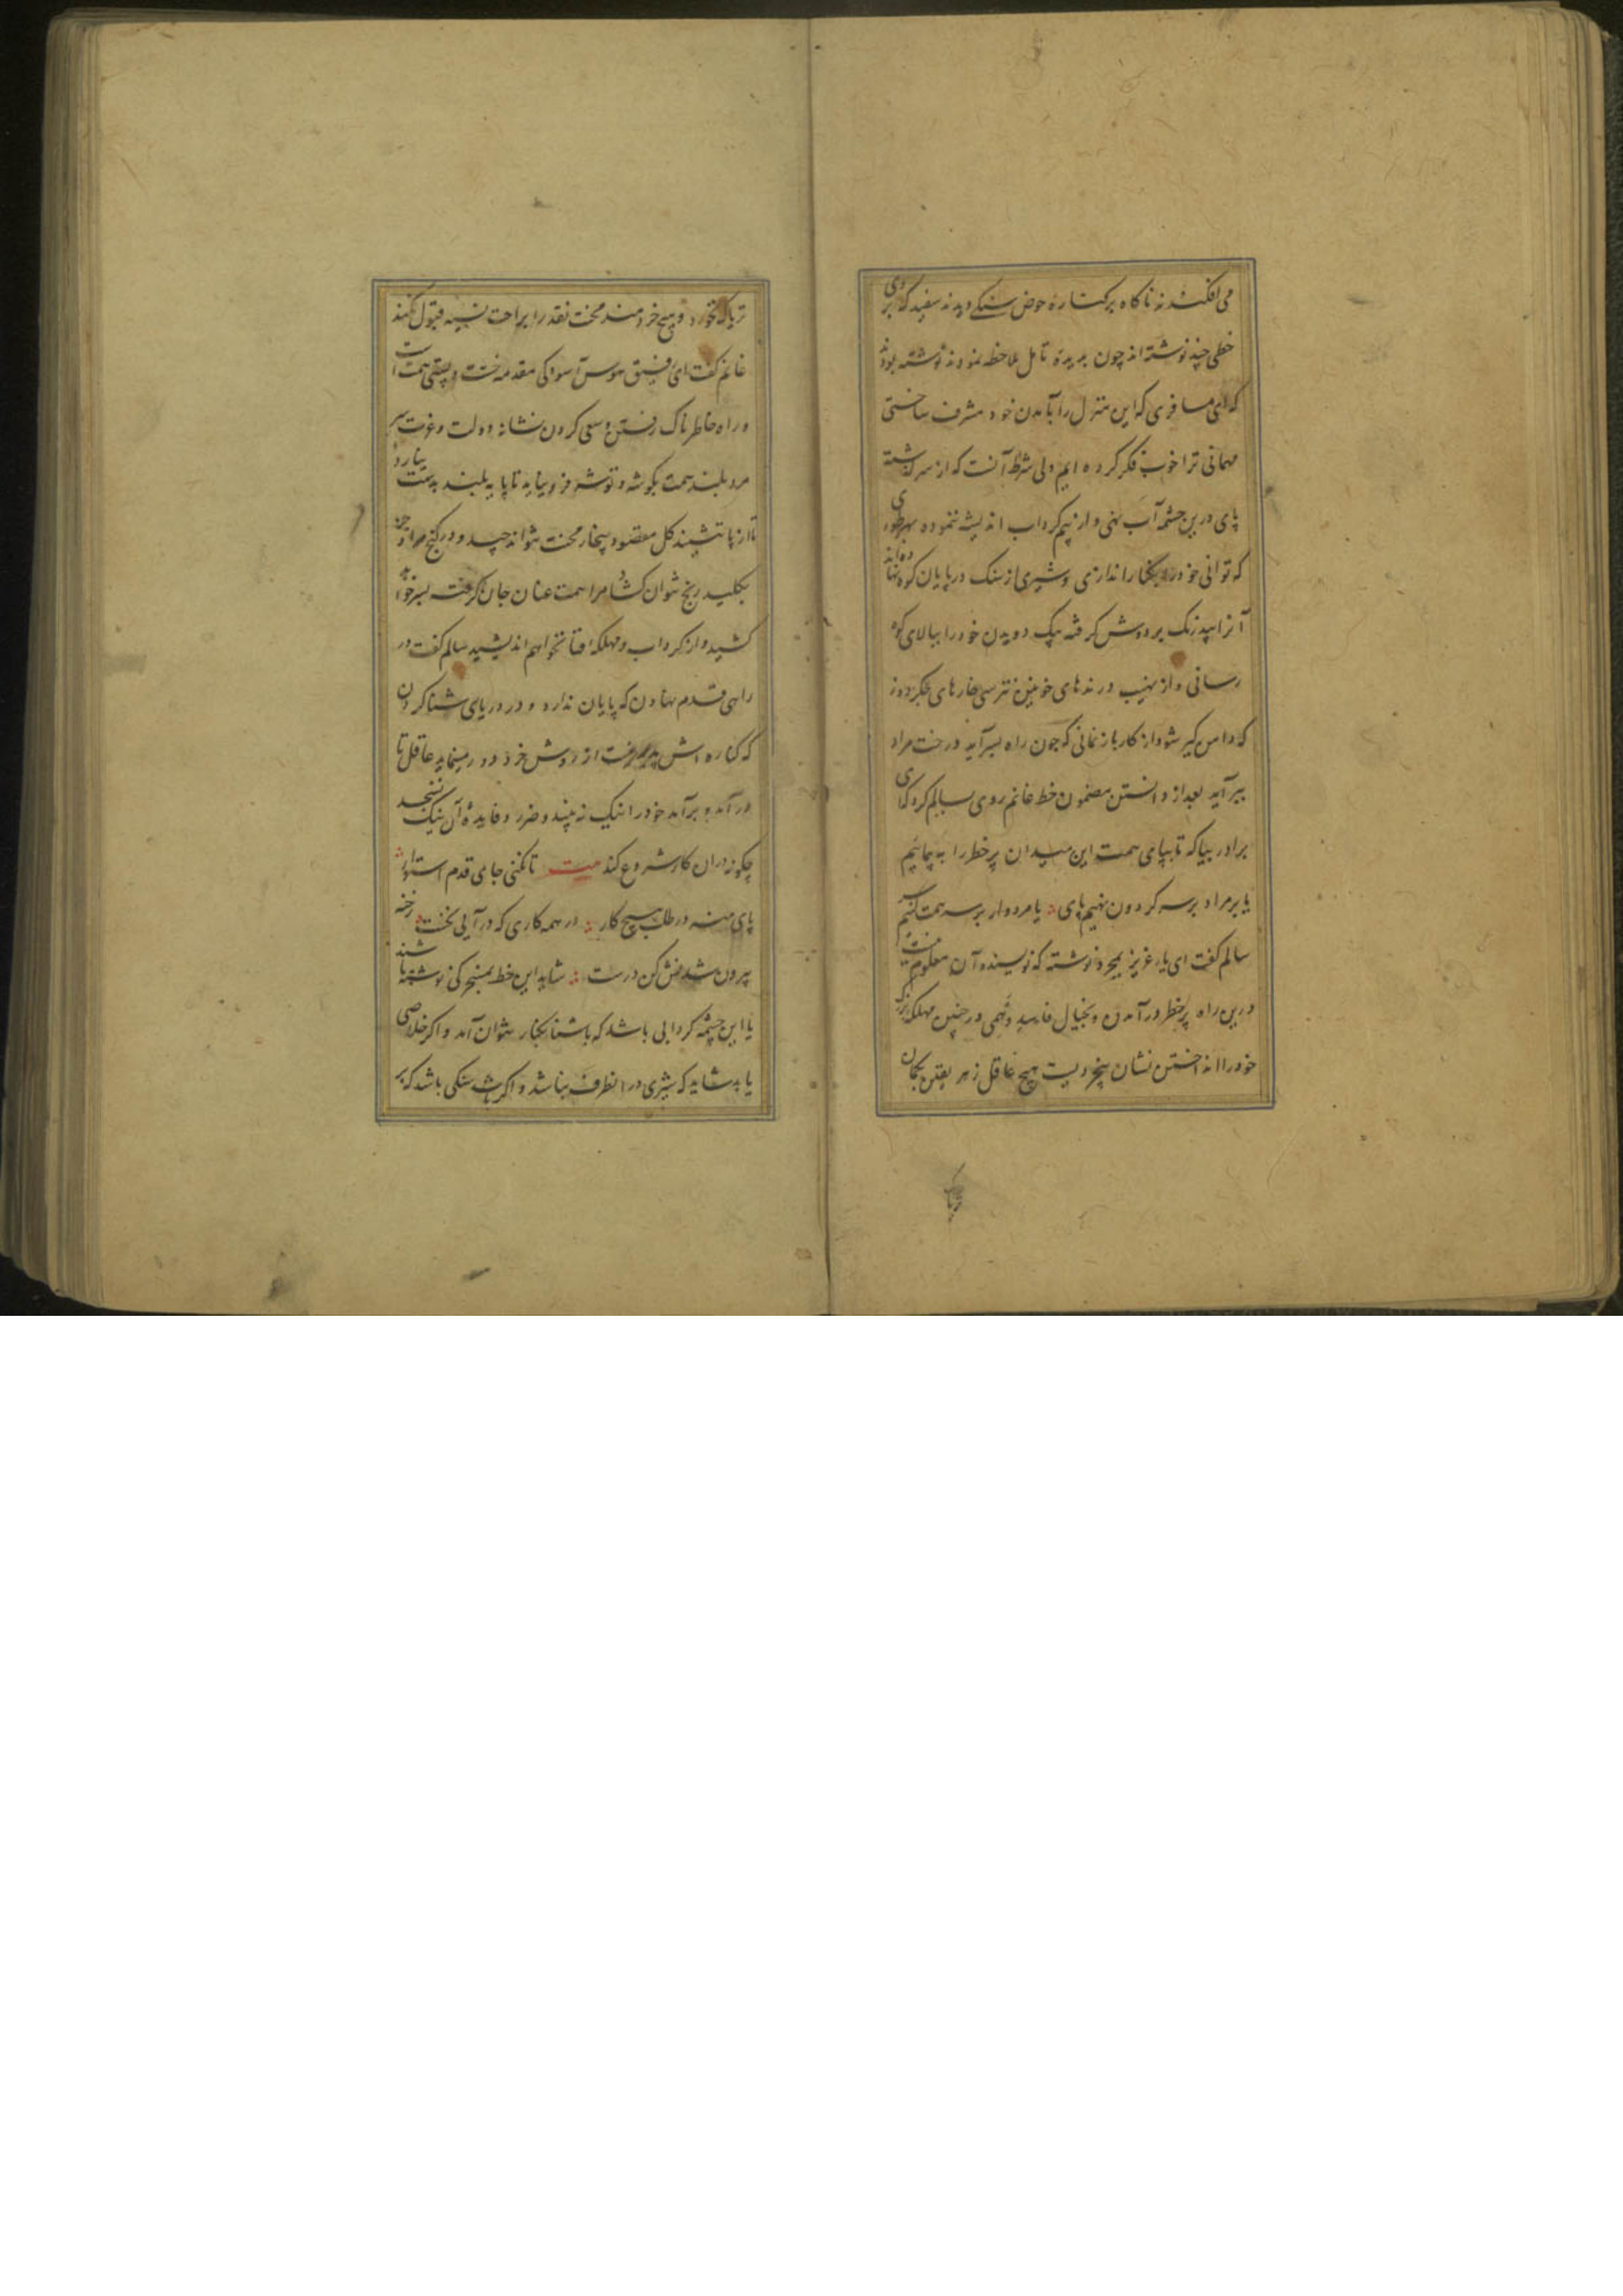 می افکندند ناکاه برکناره حوض سنکی دیدند سفید که بر روی
خطی چند نوشته اند چون بدیده تامل ملاحظه نمودند نوشته بودند
که ای مسافری که این منزل را بآمدن خود مشرف ساختی
مهمانی ترا خوب فکر کرده ایم ولی شرط آنست که از سر کذشته
پای درین چشمه آب نهی و از بیم کرداب اندیشه ننموده بهر طوری
که توانی خود را بکنار اندازی و شیری از سنک در پایان کوه نهاده اند
آنرا بیدرنک بر دوش کرفته بیک دویدن خود را ببالای کوه
رسانی و از نهیب درندهای خونین نترسی خارهای جکردوز
که دامن کیر شود از کار باز نمانی که چون راه بسر آید درخت مراد
ببر آید بعد از دانستن مضمون خط غانم روی بسالم کرد که ای
برادر بیا که تا بپای همت این میدان پر خطر را به پیمائیم
یا بر مراد بر سر کردون نهیم پای یا مردوار بر سر همت کنیم سر
سالم کفت ای یار عزیز بمجرد نوشته که نویسنده آن معلوم نیست
درین راه پر خطر در آمدن و بخیال فاسد و وهمی در چنین مهلکه بزرک
خود را انداختن نشان بیخردیست هیچ عاقل زهر بیقین بکمان
تریاک
تریاک نخورد و هیچ خردمند محنت نقد را براحت نسیه قبول نکند
غانم کفت ای رفیق هوس آسودکی مقدمه خست و پستی همت است
و راه خاطرناک رفتن و سعی کردن نشانه دولت و عزت
مرد بلند همت بکوشه و توشه فرو نیاید تا پایه بلند بدست نیارد
تا از پا ننشیند کل مقصود بیخار محنت نتواند چید و در کنج مراد جز
بکلید رنج نتوان کشاد مرا همت عنان جان کرفته بسر خواهد
کشید و از کرداب و مهلکه افتا نخواهم اندیشید سالم کفت در
راهی قدم نهادن که پایان ندارد و در دریای شنا کردن
که کناره اش پدید نیست از روش خرد دور مینماید عاقل تا
در آمد و برآمد خود را نیک نه بیند و ضرر و فایده آن نیک نسنجد
چکونه در آن کار شروع کند بیت تا نکنی جای قدم استوار
پای منه در طلب هیچ کار در همه کاری که در آیی نخست رخنه
بیرون شدنش کن درست شاید این خط بمسخرکی نوشته باشند
یا این چشمه کردابی باشد که باشنا بکنار نتوان آمد و اکر خلاصی
یابد شاید که شیری در آنطرف نباشد و اکر باشد سنکی باشد که بر